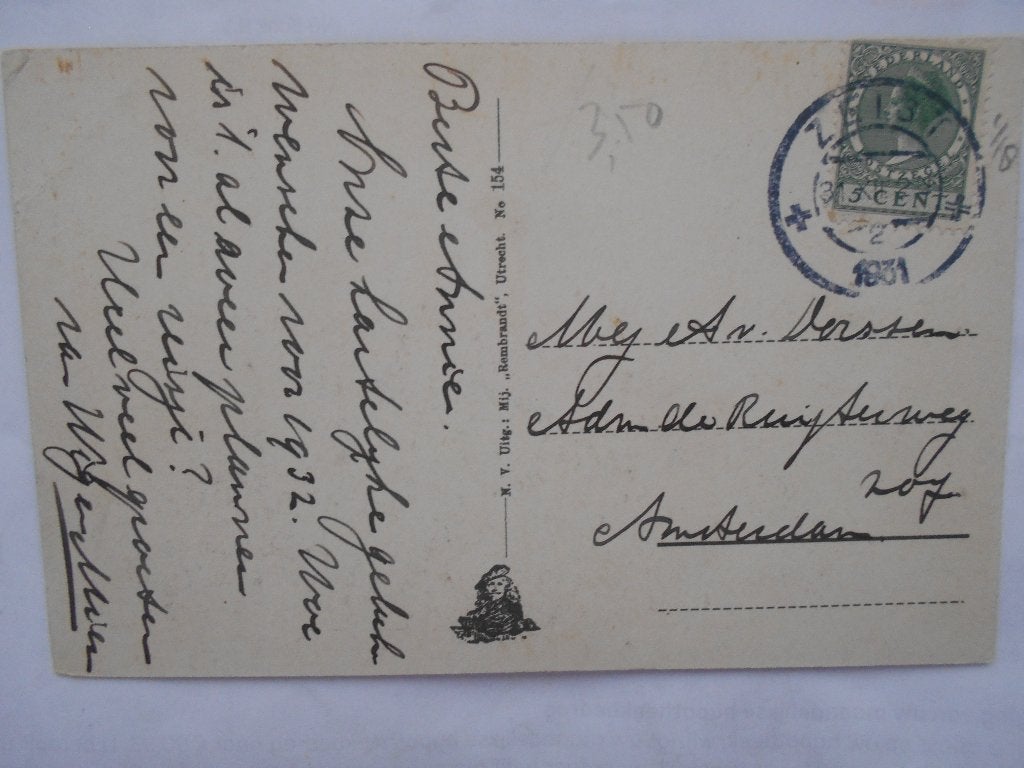 Beste Annie.
Onze hartelijke geluk
wenschen voor 1932. Hoe
is 't. al weer plannen
voor een reisje?
Heel veel groeten
van
N. V. Uitg.: Mij. „Rembrandt", Utrecht. No 154
3,50
NEDERLAND
POSTZEGEL
5 CENT
ZEIST
31
2
1931
Mej A v. Dorssen
Adm de Ruyterweg
Amsterdam